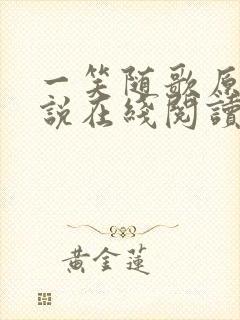 一笑随歌原
说在线阅读
黄金莲